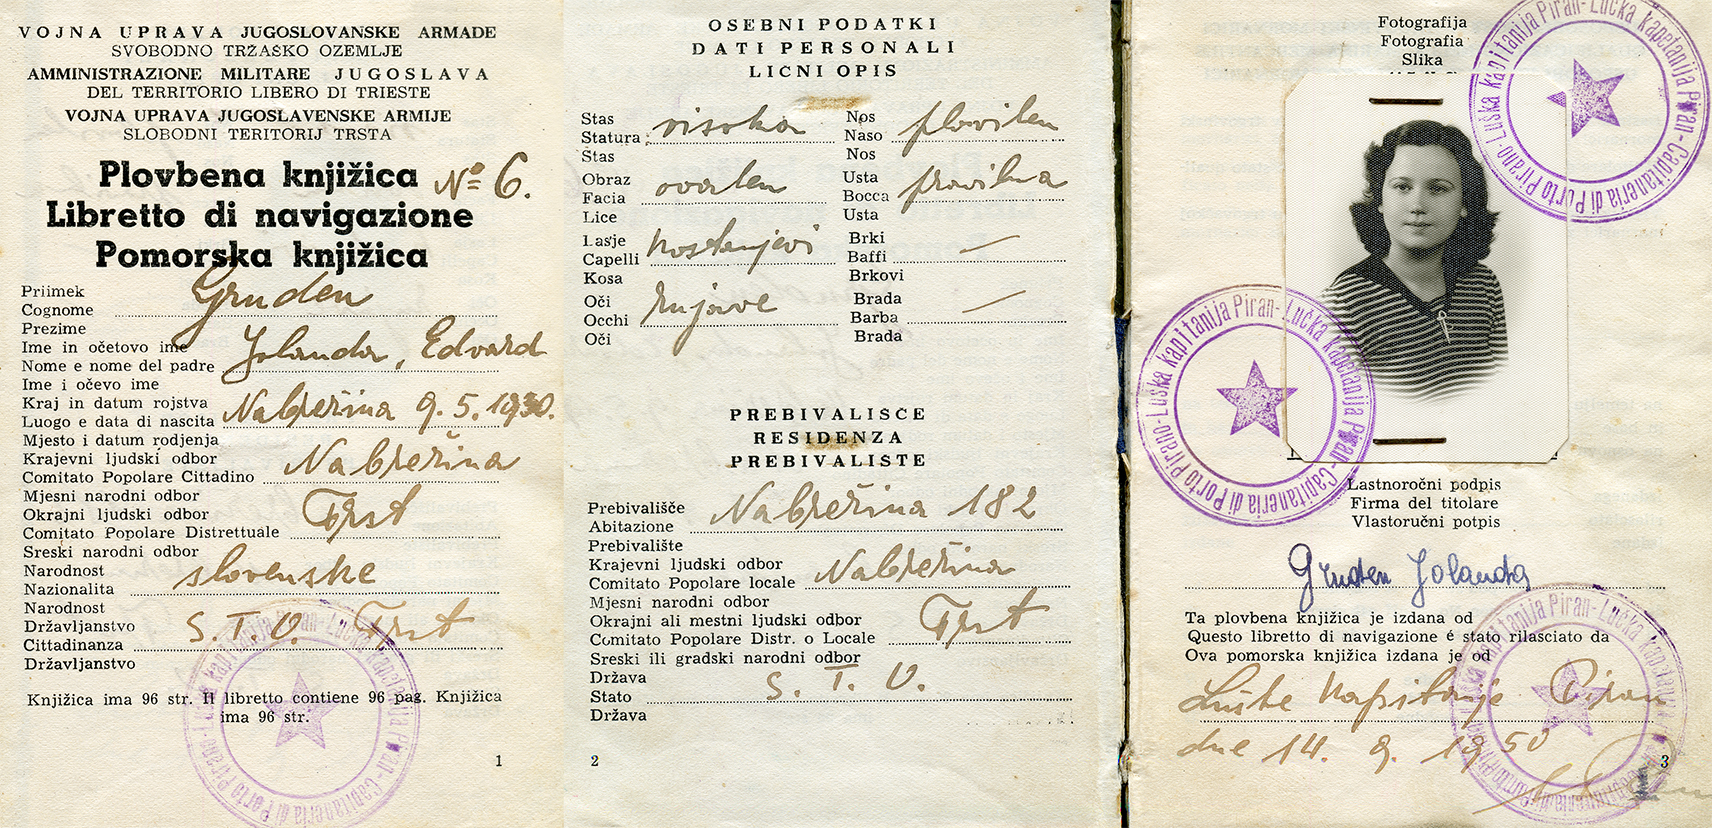 VOJNA UPRAVA JUGOSLOVANSKE ARMADE
SVOBODNO TRŽAŠKO OZEMLJE
AMMINISTRAZIONE MILITARE JUGOSLAVA
DEL TERRITORIO LIBERO DI TRIESTE
VOJNA UPRAVA JUGOSLAVENSKE ARMIJE
SLOBODNI TERITORIJ TRSTA
Plovbena knjižica Nº 6.
Libretto di navigazione
Pomorska knjižica
Priimek
Cognome Gruden
Prezime
Ime in očetovo ime
Nome e nome del padre Jolanda, Edvard
Ime i očevo ime
Kraj in datum rojstva
Luogo e data di nascita Nabrežina 9. 5. 1930.
Mjesto i datum rodjenja
Krajevni ljudski odbor
Comitato Popolare Cittadino Nabrežina
Mjesni narodni odbor
Okrajni ljudski odbor
Comitato Popolare Distrettuale Trst
Sreski narodni odbor
Narodnost
Nazionalita slovenske
Narodnost
Državljanstvo
Cittadinanza S. T. O. Trst
Državljanstvo
Knjižica ima 96 str. Il libretto contiene 96 pag. Knjižica
ima 96 str.
Luška kapitanija Piran - Lučka kapetanija Piran - Capitaneria di Porto Pirano
1
OSEBNI PODATKI
DATI PERSONALI
LICNI OPIS
Stas
Statura visoka
Stas
Obraz
Facia ovalen
Lice
Lasje
Capelli kostanjevi
Kosa
Oči
Occhi rujave
Oči
Nos
Naso pravilen
Nos
Usta
Bocca pravilna
Usta
Brki
Baffi —
Brkovi
Brada
Barba —
Brada
PREBIVALISČE
RESIDENZA
PREBIVALISTE
Prebivališče
Abitazione Nabrežina 182
Prebivalište
Krajevni ljudski odbor
Comitato Popolare locale Nabrežina
Mjesni narodni odbor
Okrajni ali mestni ljudski odbor
Comitato Popolare Distr. o Locale Trst
Sreski ili gradski narodni odbor
Država
Stato S. T. O.
Država
2
Fotografija
Fotografia
Slika
Luška kapitanija Piran - Lučka kapetanija Piran - Capitaneria di Porto Pirano
Luška kapitanija Piran - Lučka kapetanija Piran - Capitaneria di Porto Pirano
Lastnoročni podpis
Firma del titolare
Vlastoručni potpis
Gruden Jolanda
Ta plovbena knjižica je izdana od
Questo libretto di navigazione é stato rilasciato da
Ova pomorska knjižica izdana je od
Luške kapitanije Piran
dne 14. 9. 1950
Luška kapitanija Piran - Lučka kapetanija Piran - Capitaneria di Porto Pirano
3